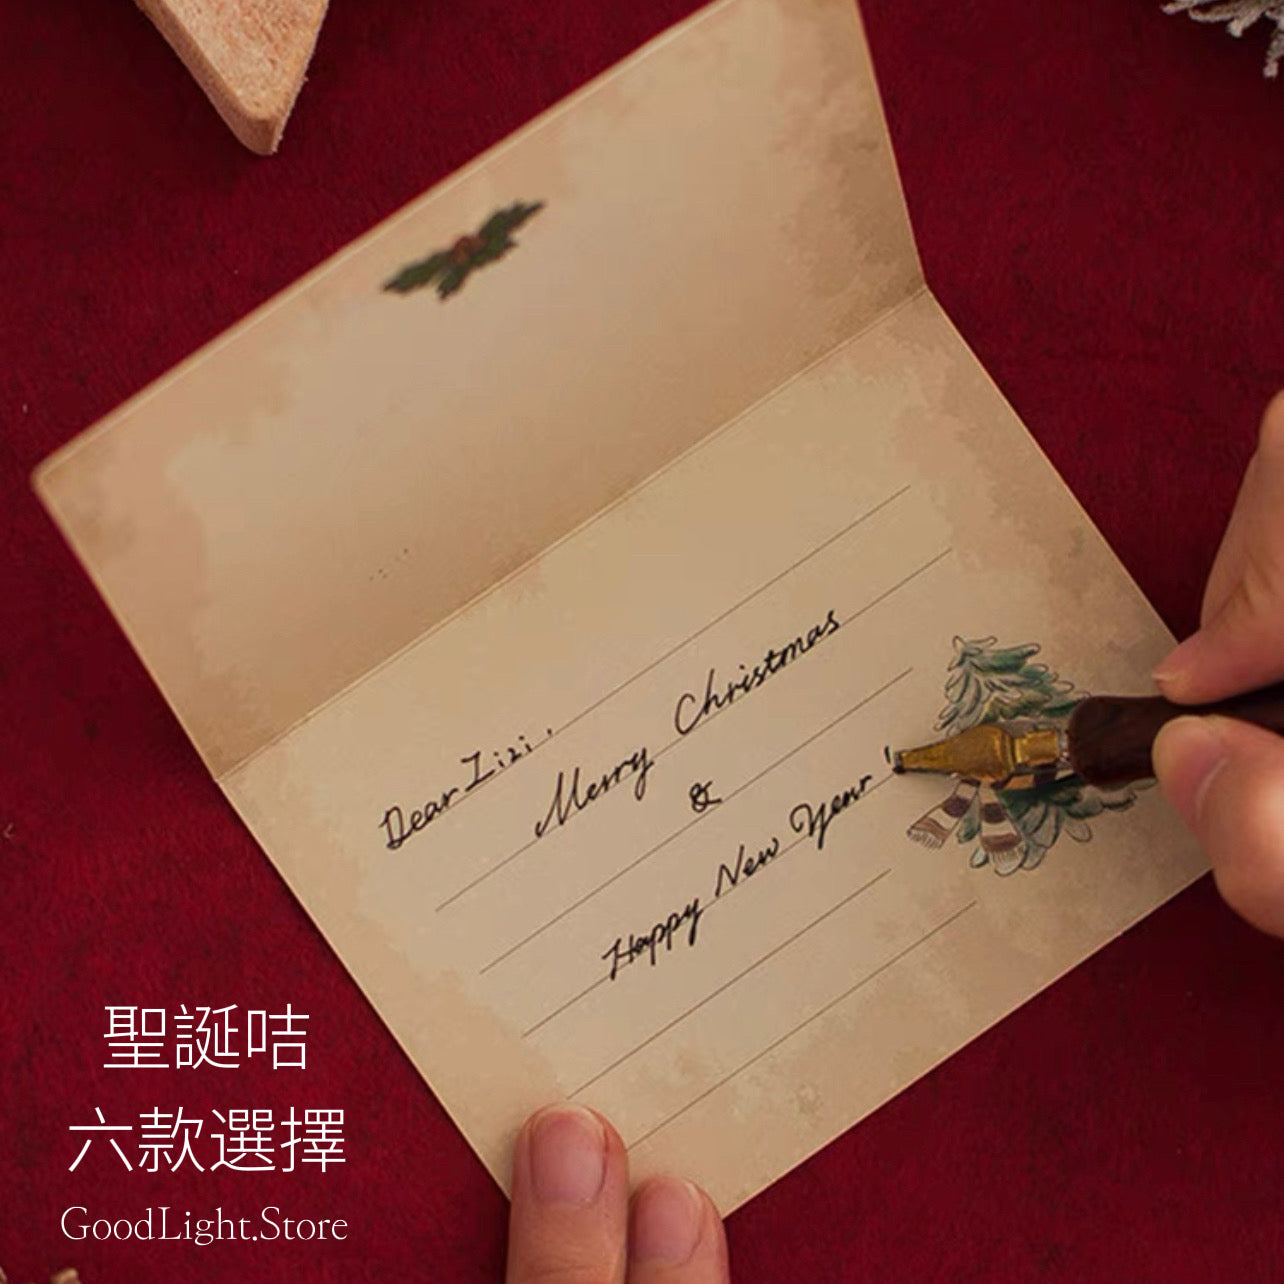 Dear Zizi,
Merry Christmas
&
Happy New Year '
聖誕咭
六款選擇
GoodLight.Store